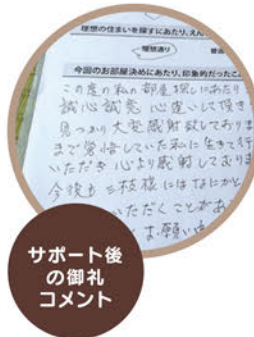 理想の住まいを探すにあたり、えん
理想通り
今回のお部屋決めにあたり、印象的だったこ
この度の私の部屋探しにあたり
誠心誠意 心遣いして頂き
見つかり大変感射致しておりま
まで覚悟していた私に生きて行
いただき心より感射しておりま
今後も 三枝様にはなにかと
いただくことがあ
お願い
サポート後
の御礼
コメント